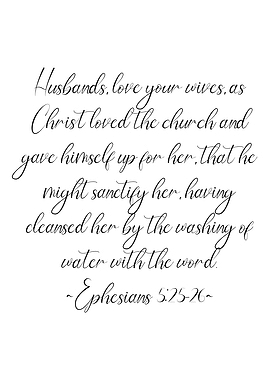 Husbands, love your wives, as
Christ loved the church and
gave himself up for her, that he
might sanctify her, having
cleansed her by the washing of
water with the word.
~Ephesians 5:25-26~